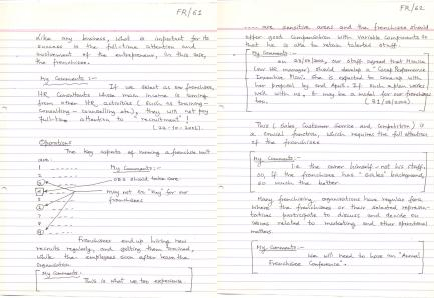 FR/61
Like any business, what is important for its
success is the full-time attention and
involvement of the entrepreneur, in this case,
the franchisee.
My Comments :-
If we select as our franchisee,
HR Consultants whose main income is coming
from other HR activities (such as Training -
Consulting - Counselling etc), they will not pay
full-time attention to "recruitment" !
Operations
The key aspects of running a franchise unit
are :
1
My Comments :-
2
3
4
may not be "Key" for our
5
franchisees
6
7
8
9
Franchisees end up hiring new
recruits regularly, and getting them trained,
while the employees soon after leave the
organisation.
My Comments :-
This is what we too experience.
FR/62
are sensitive areas and the franchisee should
offer good compensation with variable components so
that he is able to retain talented staff.
My Comments :-
on our staff agreed that
(our HR manager) should develop a "Group Performance
Incentive Plan". She is expected to come up with
her proposal by end April. If such a plan works
well with us, it may be a model for our franchisees
too.
This (Sales, Customer Service and Competition) is
a crucial function, which requires the full attention
of the franchisee
My Comments :-
i.e. the owner himself - not his staff.
So, if the franchisee has "Sales" background,
so much the better.
Many franchising organisations have regular fora
where the franchisees or their selected represen-
tatives participate to discuss and decide on
issues related to marketing and other operational
matters.
My Comments :-
We will need to have an "Annual
Franchisee Conference".